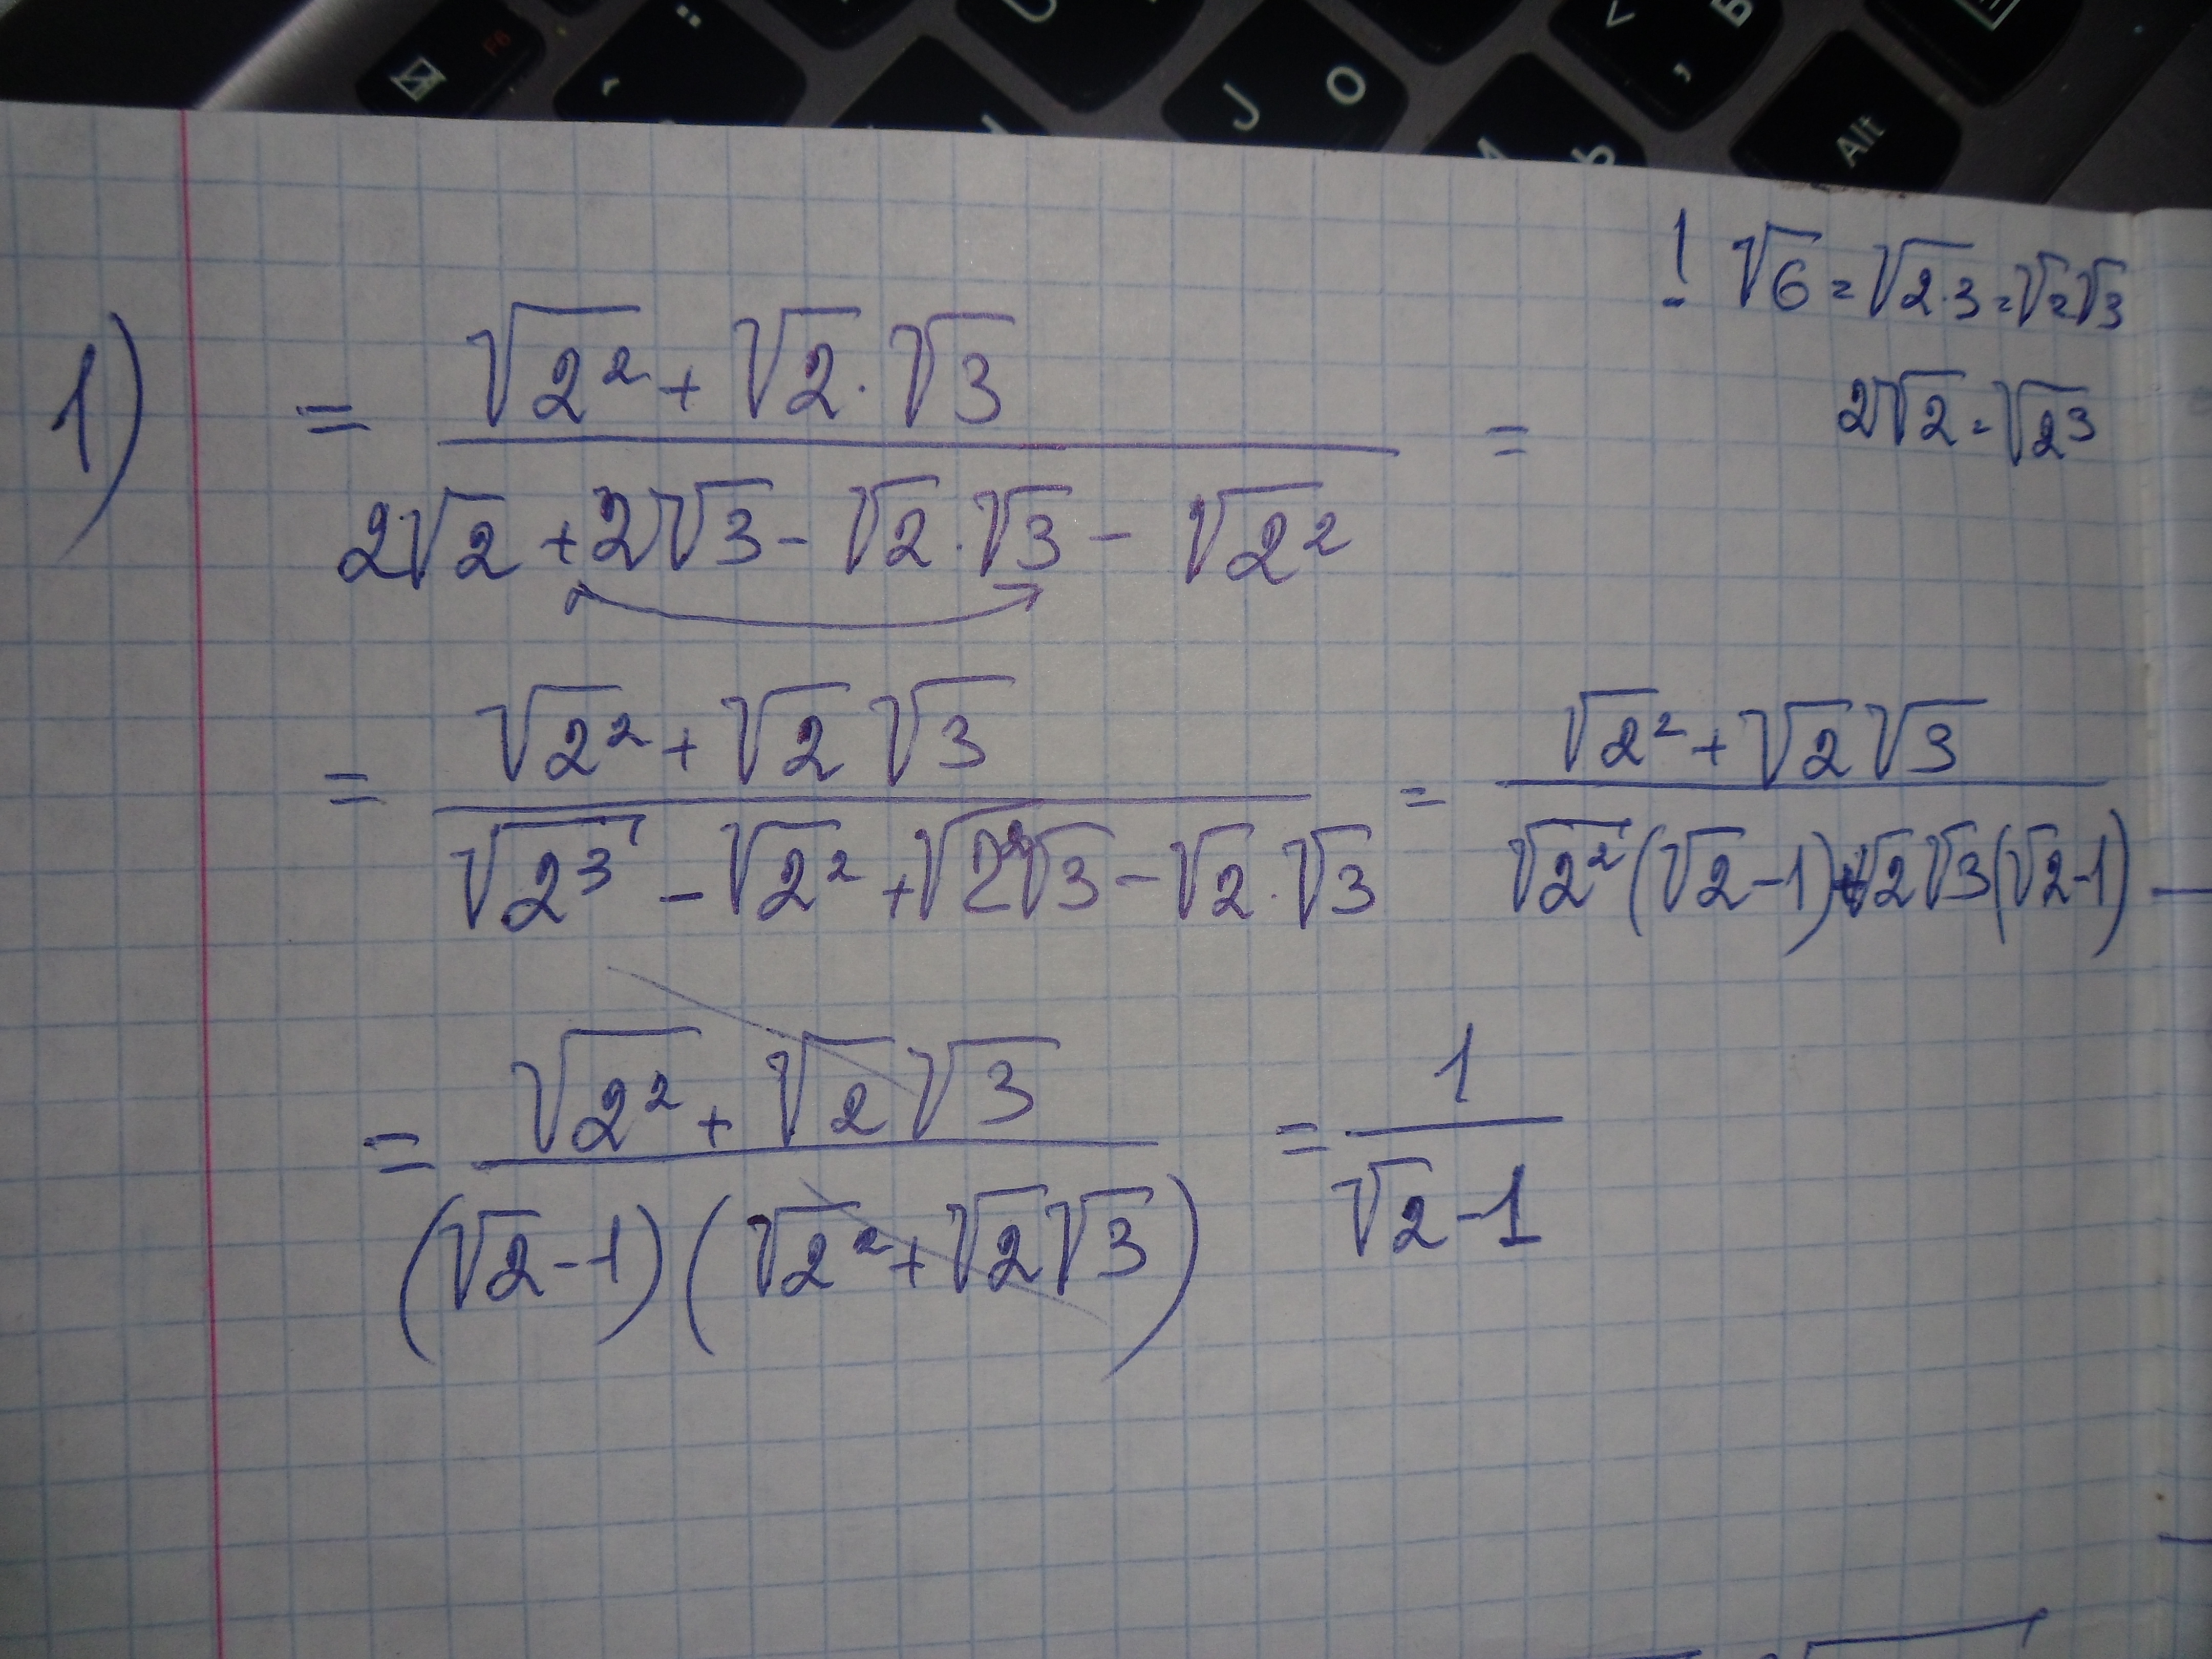 F6
J О
< Б ,
Ь
Alt
! √6 = √2·3 = √2√3
2√2 = √2³
1) = (√2² + √2 · √3) / (2√2 + 2√3 - √2 · √3 - √2²) =
= (√2² + √2 √3) / (√2³ - √2² + √2²√3 - √2 · √3) = (√2² + √2 √3) / (√2²(√2-1)+√2√3(√2-1))
= (√2² + √2√3) / ((√2-1)(√2² + √2√3)) = 1 / (√2-1)